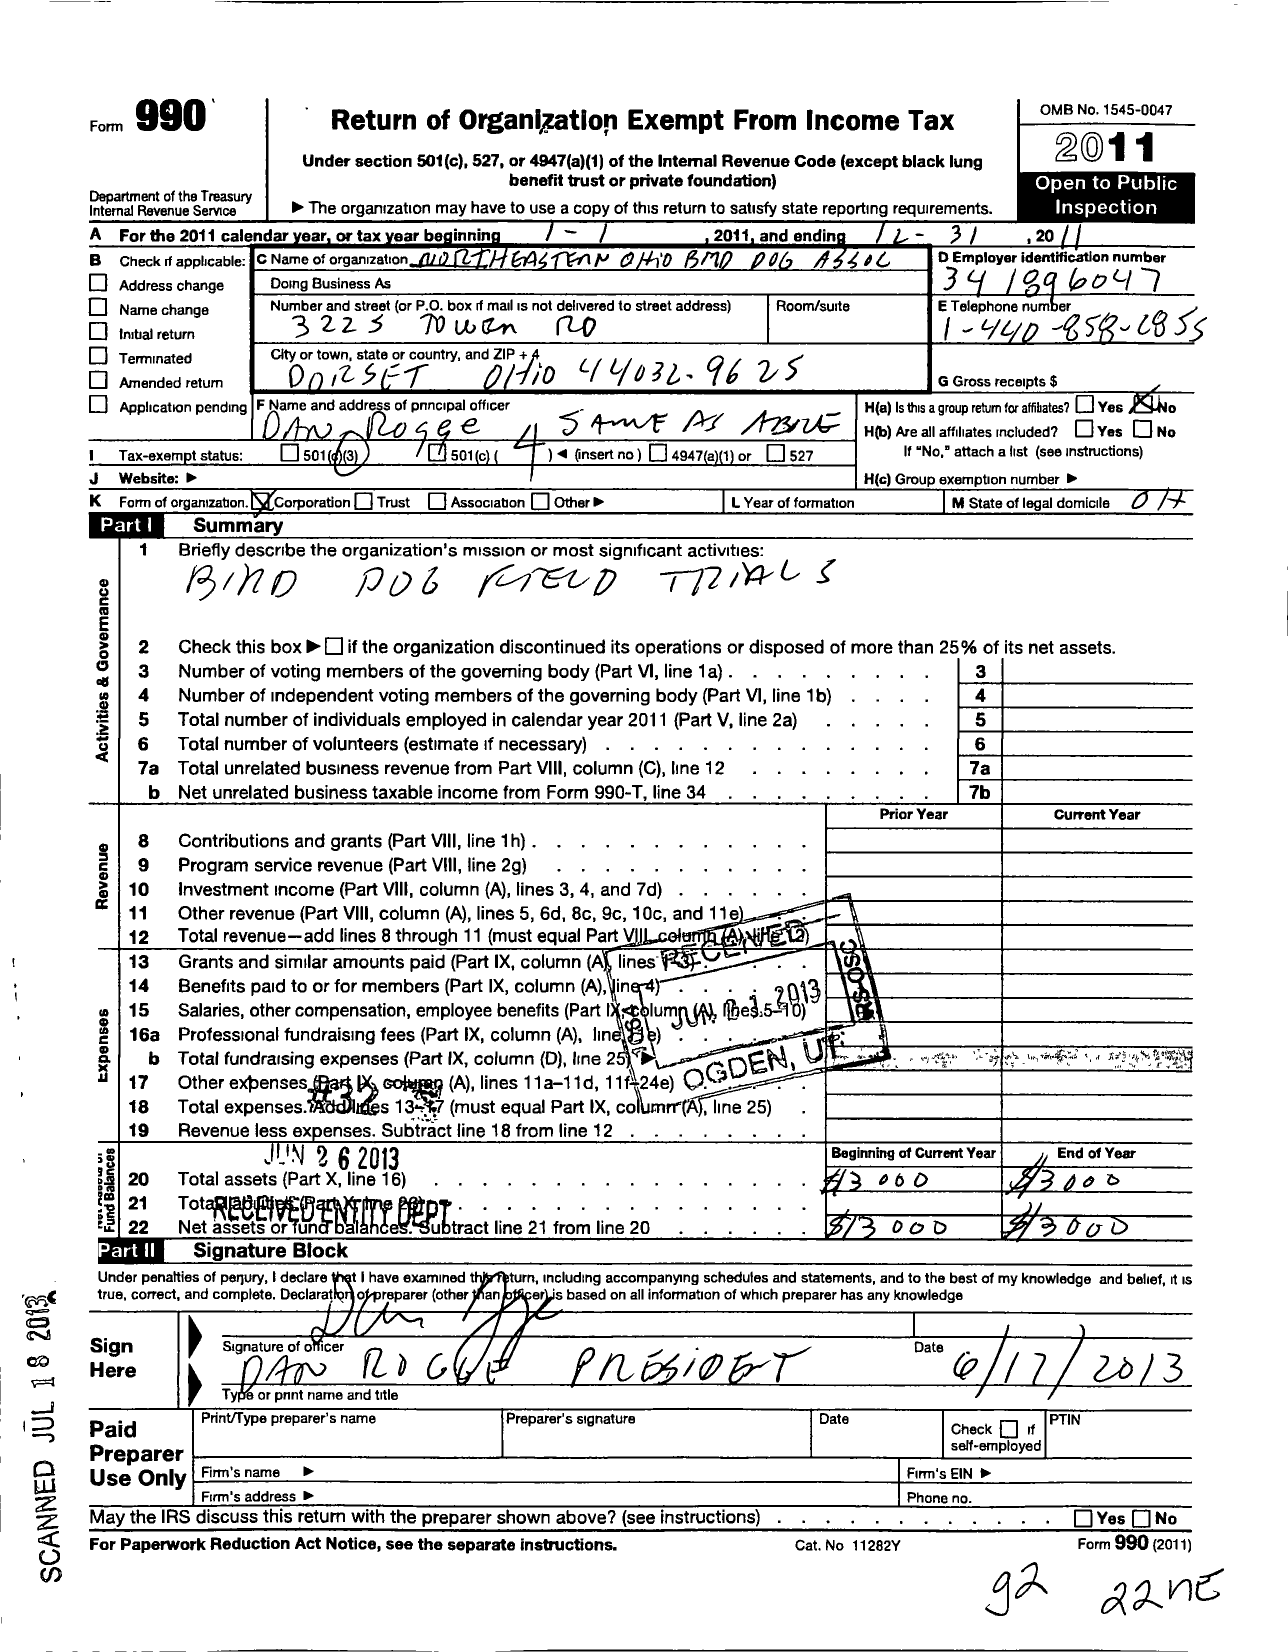 Form 990
Return of Organization Exempt From Income Tax
OMB No. 1545-0047
2011
Under section 501(c), 527, or 4947(a)(1) of the Internal Revenue Code (except black lung
benefit trust or private foundation)
Open to Public
Inspection
Department of the Treasury
Internal Revenue Service
▶ The organization may have to use a copy of this return to satisfy state reporting requirements.
A For the 2011 calendar year, or tax year beginning 1-1 , 2011, and ending 12-31 , 20 11
B Check if applicable:
Address change
Name change
Initial return
Terminated
Amended return
Application pending
C Name of organization NORTHEASTERN OHIO BIRD DOG ASSOC
Doing Business As
Number and street (or P.O. box if mail is not delivered to street address) Room/suite
3225 TOWER RD
City or town, state or country, and ZIP + 4
DORSET OHIO 44032-9625
D Employer identification number
34 1896047
E Telephone number
1-440-858-2855
G Gross receipts $
F Name and address of principal officer
DAN ROGGE SAME AS ABOVE
H(a) Is this a group return for affiliates? Yes No
H(b) Are all affiliates included? Yes No
If "No," attach a list (see instructions)
H(c) Group exemption number ▶
I Tax-exempt status: 501(c)(3) 501(c) ( 4 ) ◄ (insert no) 4947(a)(1) or 527
J Website: ▶
K Form of organization. Corporation Trust Association Other ▶
L Year of formation
M State of legal domicile OH
Part I Summary
Activities & Governance
1 Briefly describe the organization's mission or most significant activities:
BIRD DOG FIELD TRIALS
2 Check this box ▶ if the organization discontinued its operations or disposed of more than 25% of its net assets.
3 Number of voting members of the governing body (Part VI, line 1a) . . . . . . . . . 3
4 Number of independent voting members of the governing body (Part VI, line 1b) . . . . 4
5 Total number of individuals employed in calendar year 2011 (Part V, line 2a) . . . . . 5
6 Total number of volunteers (estimate if necessary) . . . . . . . . . . . . . . 6
7a Total unrelated business revenue from Part VIII, column (C), line 12 . . . . . . . . 7a
b Net unrelated business taxable income from Form 990-T, line 34 . . . . . . . . . 7b
Prior Year Current Year
Revenue
8 Contributions and grants (Part VIII, line 1h) . . . . . . . . . . . .
9 Program service revenue (Part VIII, line 2g) . . . . . . . . . . .
10 Investment income (Part VIII, column (A), lines 3, 4, and 7d) . . . . . .
11 Other revenue (Part VIII, column (A), lines 5, 6d, 8c, 9c, 10c, and 11e)
12 Total revenue—add lines 8 through 11 (must equal Part VIII, column (A), line 12)
Expenses
13 Grants and similar amounts paid (Part IX, column (A), lines 1–3) . . . .
14 Benefits paid to or for members (Part IX, column (A), line 4) . . . . .
15 Salaries, other compensation, employee benefits (Part IX, column (A), lines 5–10)
16a Professional fundraising fees (Part IX, column (A), line 11e) . . . . .
b Total fundraising expenses (Part IX, column (D), line 25) ▶
17 Other expenses (Part IX, column (A), lines 11a–11d, 11f–24e)
18 Total expenses. Add lines 13–17 (must equal Part IX, column (A), line 25) .
19 Revenue less expenses. Subtract line 18 from line 12 . . . . . . . .
RECEIVED
JUN 21 2013
IRS-OSC
OGDEN, UT
#32
JUN 26 2013
RECEIVED ENTITY DEPT
Net Assets or
Fund Balances
Beginning of Current Year End of Year
20 Total assets (Part X, line 16) . . . . . . . . . . . . . . . . $13000 $13000
21 Total liabilities (Part X, line 26) . . . . . . . . . . . . . . .
22 Net assets or fund balances. Subtract line 21 from line 20 . . . . . . $13000 $13000
Part II Signature Block
Under penalties of perjury, I declare that I have examined this return, including accompanying schedules and statements, and to the best of my knowledge and belief, it is
true, correct, and complete. Declaration of preparer (other than officer) is based on all information of which preparer has any knowledge
Sign
Here
Dan Rogge
Signature of officer
Date
DAN ROGGE PRESIDENT 6/17/2013
Type or print name and title
Paid
Preparer
Use Only
Print/Type preparer's name Preparer's signature Date Check if
self-employed PTIN
Firm's name ▶ Firm's EIN ▶
Firm's address ▶ Phone no.
May the IRS discuss this return with the preparer shown above? (see instructions) . . . . . . . . . . . . Yes No
For Paperwork Reduction Act Notice, see the separate instructions. Cat. No 11282Y Form 990 (2011)
SCANNED JUL 18 2013
92 22NE